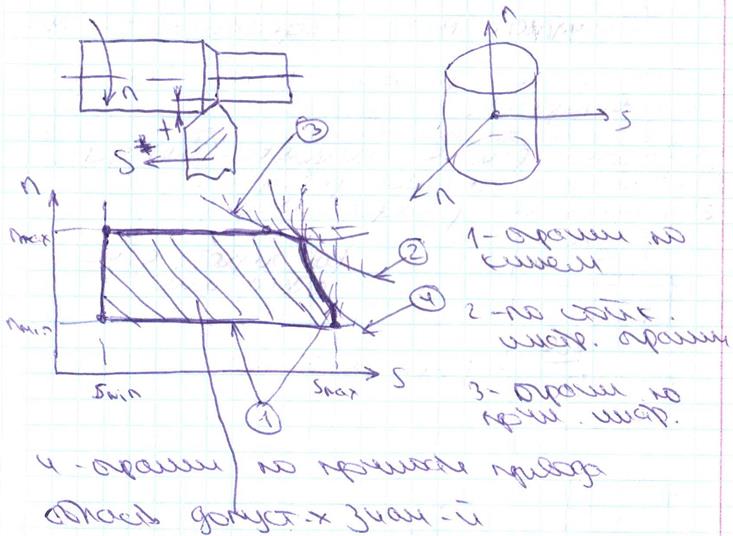 n
n
S
t
S
n
3
n
n max
n min
2
4
1
S min
S max
S
1 - огранич. по
кинем
2 - по стойк.
инстр. огранич
3 - огранич. по
прочн. инстр.
4 - огранич по прочности привода
область допуст-х знач-й